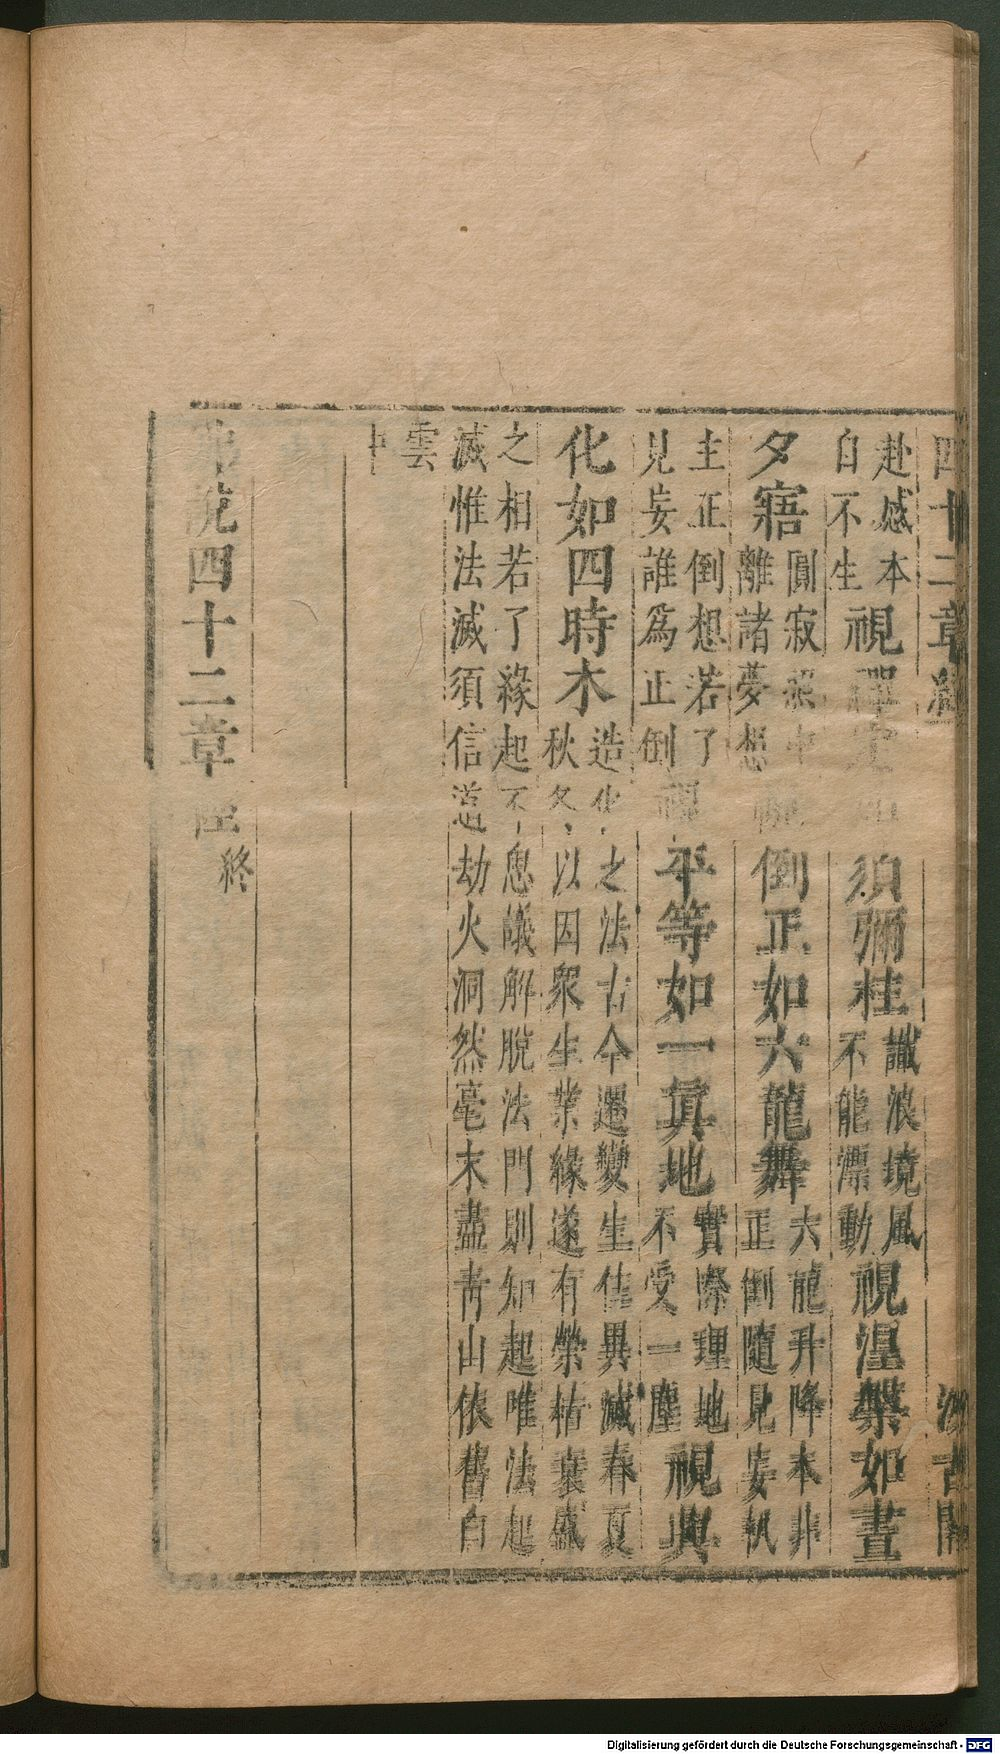 四十二章經 汲古閣
赴感本自不生視禪定如須彌柱讖浪境風不能漂動視涅槃如晝
夕寤圓寂照中離諸夢想視倒正如六龍舞六龍升降本非正倒隨見妄執
主正倒想若了見妄誰爲正倒視平等如一眞地實際理地不受一塵視興
化如四時木造化之法古今遷變生住異滅春夏秋冬以因衆生業緣遂有榮枯衰盛
之相若了緣起不思議解脫法門則知起唯法起滅惟法滅須信道劫火洞然毫末盡靑山依舊白
雲中
佛說四十二章經終
Digitalisierung gefördert durch die Deutsche Forschungsgemeinschaft - DFG